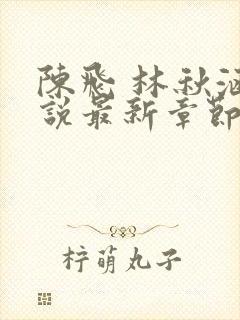 陳飛 林秋涵
說最新章節
梓萌丸子